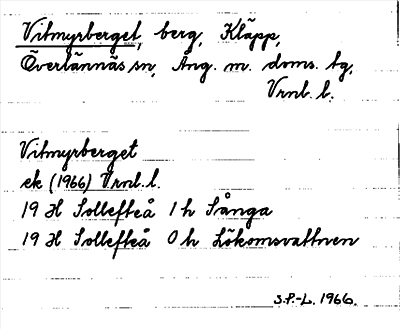 Vitmyrberget, berg, Kläpp,
Överlännäs sn, Ång. m. doms. tg,
Vrnl. l.
Vitmyrberget
ek (1966) Vrnl. l.
19 H Sollefteå 1 h Sånga
19 H Sollefteå 0 h Lökomsvattnen
S.P.-L. 1966.